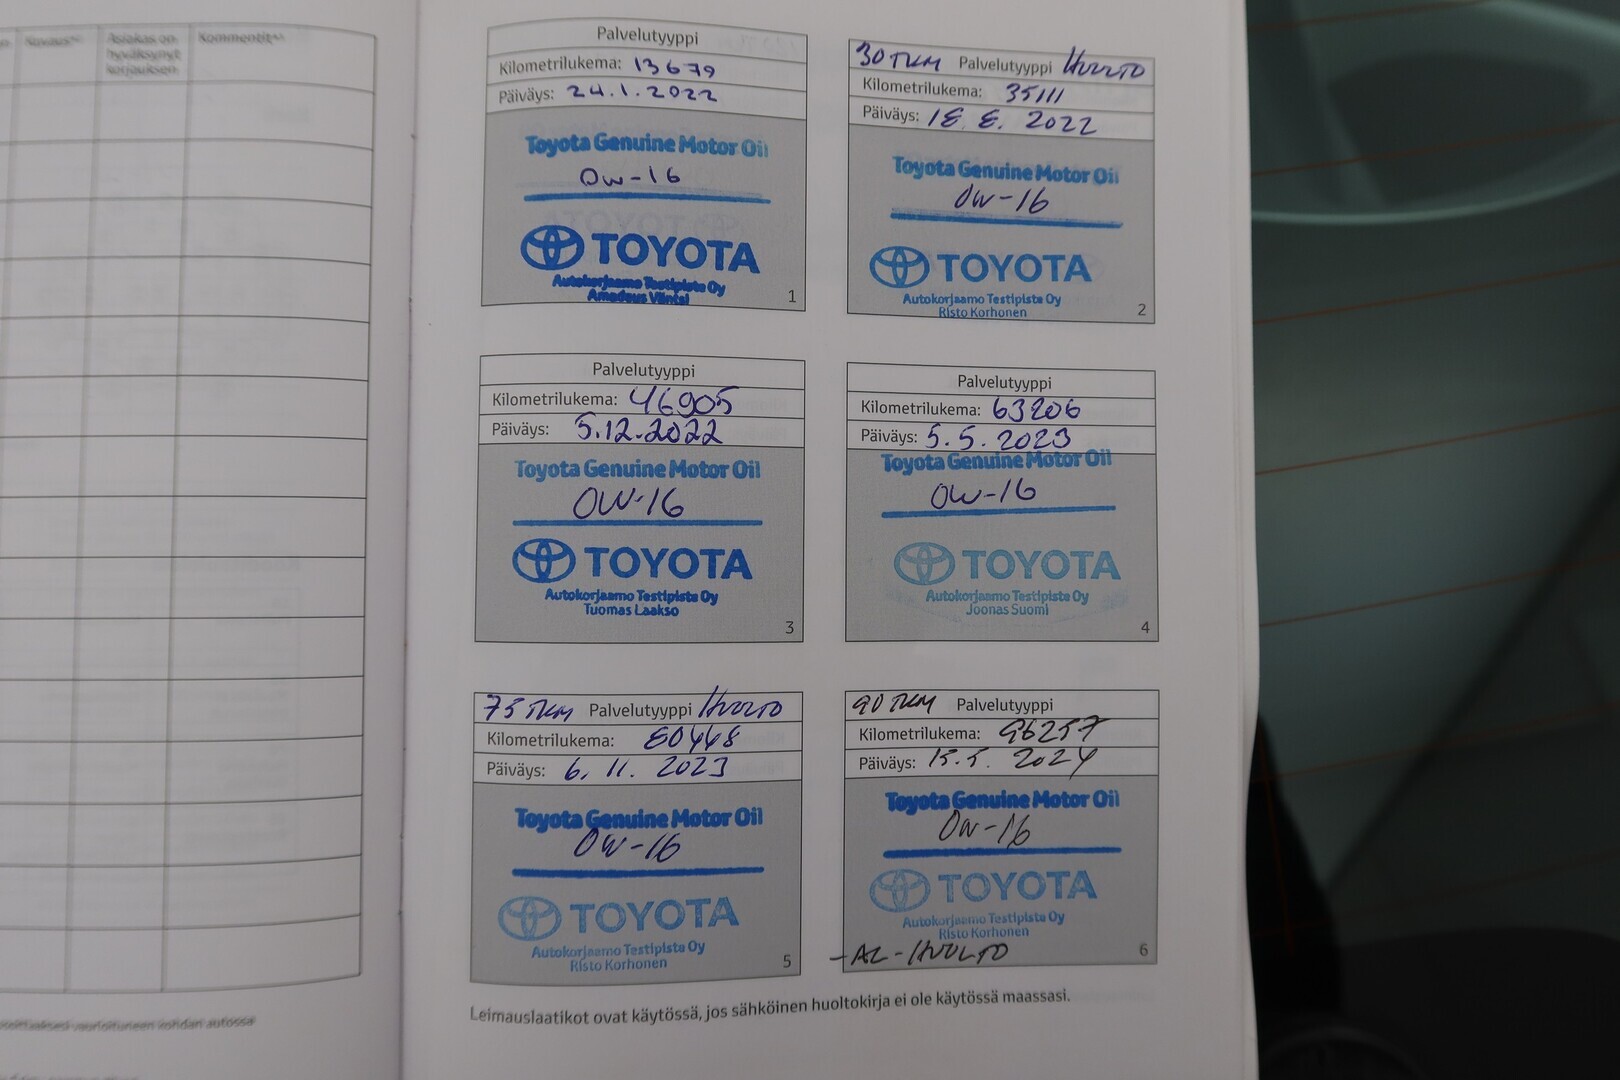 Kuvaus
Asiakas on
hyväksynyt
korjauksen
Kommentit
Palvelutyyppi
Kilometrilukema: 13679
Päiväys: 24.1.2022
Toyota Genuine Motor Oil
0W-16
TOYOTA
Autokorjaamo Testipiste Oy
1
30 TKM Palvelutyyppi HUOLTO
Kilometrilukema: 35111
Päiväys: 18.8.2022
Toyota Genuine Motor Oil
0W-16
TOYOTA
Autokorjaamo Testipiste Oy
Risto Korhonen
2
Palvelutyyppi
Kilometrilukema: 46905
Päiväys: 5.12.2022
Toyota Genuine Motor Oil
0W-16
TOYOTA
Autokorjaamo Testipiste Oy
Tuomas Laakso
3
Palvelutyyppi
Kilometrilukema: 63206
Päiväys: 5.5.2023
Toyota Genuine Motor Oil
0W-16
TOYOTA
Autokorjaamo Testipiste Oy
Joonas Suomi
4
75 TKM Palvelutyyppi HUOLTO
Kilometrilukema: 80448
Päiväys: 6.11.2023
Toyota Genuine Motor Oil
0W-16
TOYOTA
Autokorjaamo Testipiste Oy
Risto Korhonen
5
90 TKM Palvelutyyppi
Kilometrilukema: 96257
Päiväys: 15.5.2024
Toyota Genuine Motor Oil
0W-16
TOYOTA
Autokorjaamo Testipiste Oy
Risto Korhonen
-AC-HUOLTO
6
Leimauslaatikot ovat käytössä, jos sähköinen huoltokirja ei ole käytössä maassasi.